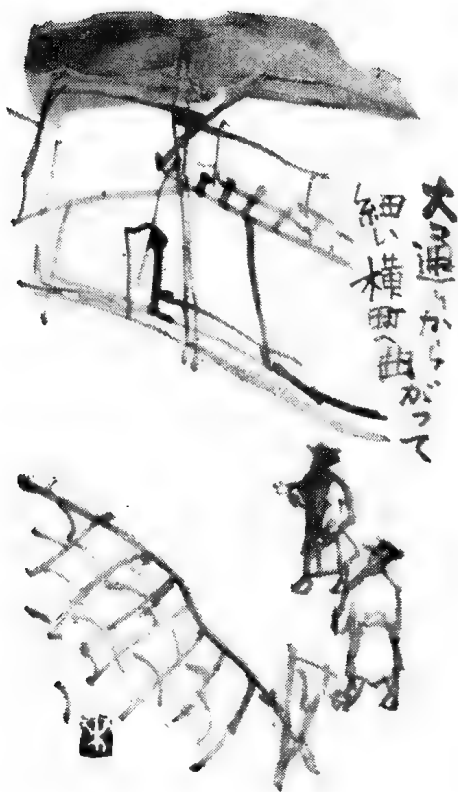 大通りから
細い横町へ曲がって